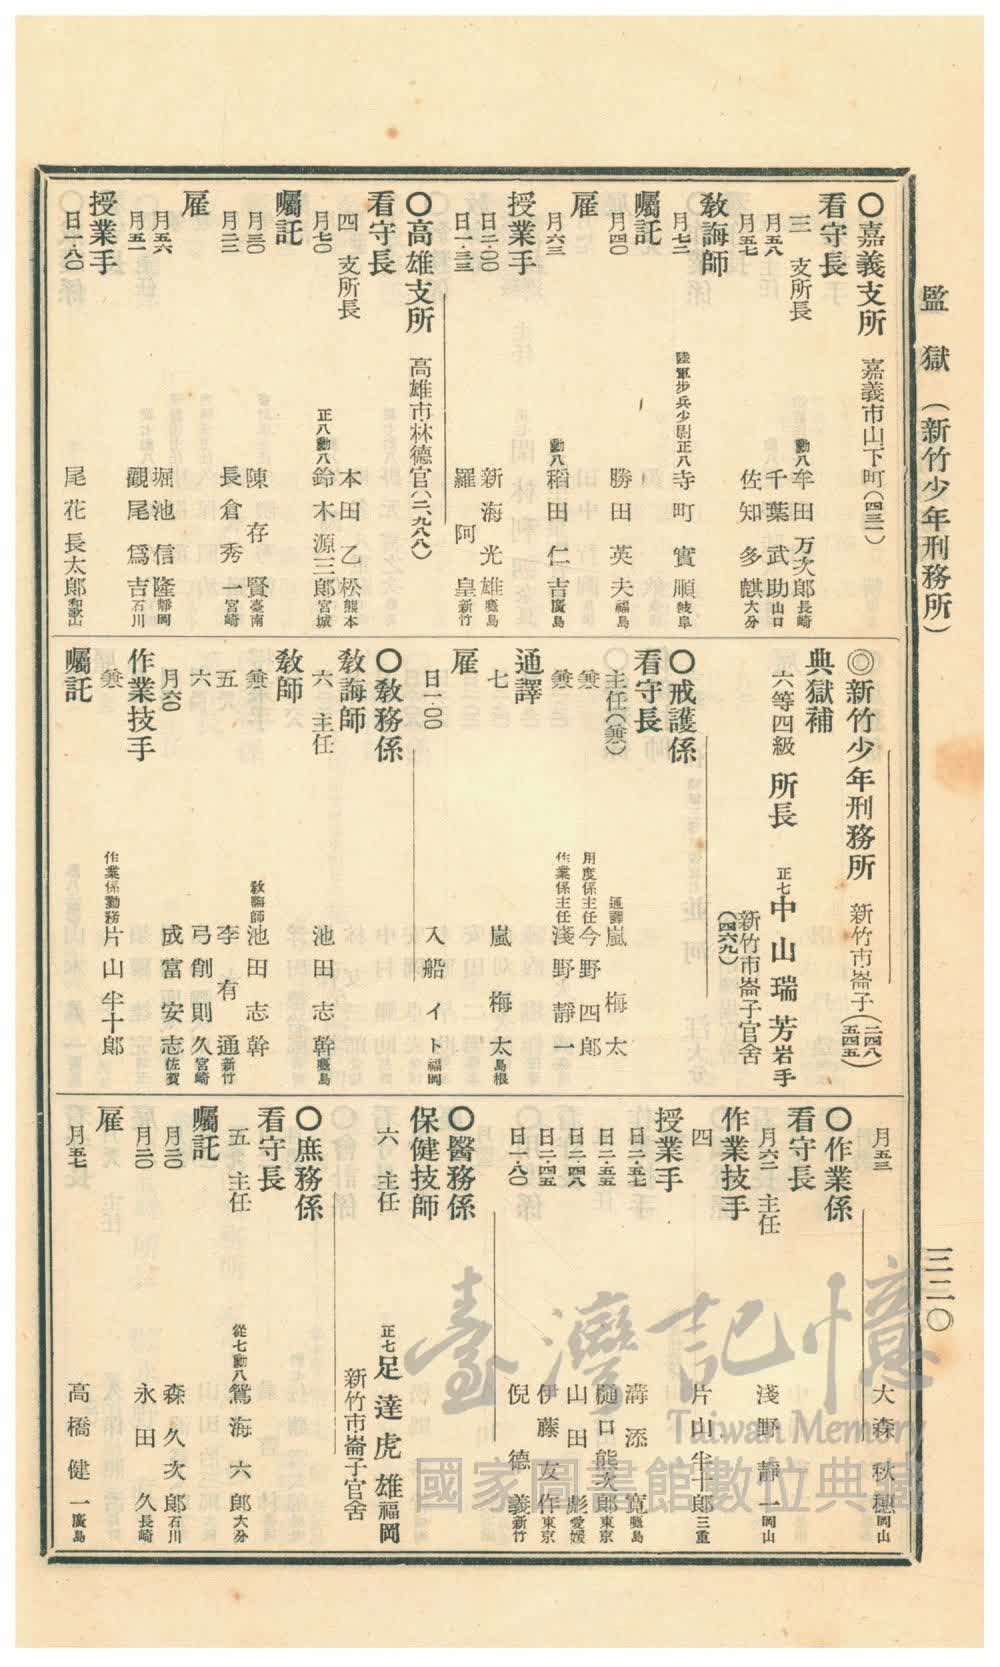 監獄（新竹少年刑務所）
三二〇
〇嘉義支所　嘉義市山下町（四三一）
看守長
三　支所長　勳八牟田万次郎長崎
月五八　千葉武助山口
月五七　佐知多麒大分
教誨師
月七二　陸軍步兵少尉正八寺町實順岐阜
囑託
月四〇　勝田英夫福島
雇
月六三　勳八稻田仁吉廣島
授業手
日二・〇〇　新海光雄
日一・三三　羅阿皇新竹
〇高雄支所　高雄市林德官（二、九八八）
看守長
四　支所長　本田乙松熊本
月七〇　正八勳八鈴木源三郎宮城
囑託
月三〇　陳存賢臺南
月二二　長倉秀一宮崎
雇
月五六　堀池信隆靜岡
月五一　觀尾爲吉石川
授業手
日一・八〇　尾花長太郎和歌山
◎新竹少年刑務所　新竹市崙子（二四八）（五四五）
典獄補
六等四級　所長　正七中山瑞芳岩手
新竹市崙子官舍（四六九）
〇戒護係
看守長
〇主任（兼）　通譯嵐梅太
兼　用度係主任今野四郎
兼　作業係主任淺野靜一
通譯
七　嵐梅太島根
雇
日一・〇〇　入船イト福岡
〇教務係
教誨師
六　主任　池田志幹
教師
兼　教誨師池田志幹
五　李有通新竹
六　弓削則久宮崎
月六〇　成富安志佐賀
作業技手
兼　作業係勤務片山半十郎
囑託
月五三　大森秋穗岡山
〇作業係
看守長
月六二　主任　淺野靜一岡山
作業技手
四　片山半十郎三重
授業手
日二・五七　溝添寬
日二・五五　樋口熊次郎東京
日二・四八　山田彪愛媛
日二・四五　伊藤友作東京
日一・八〇　倪德義新竹
〇醫務係
保健技師
六　主任　正七足達虎雄福岡
新竹市崙子官舍
〇庶務係
看守長
五　主任　從七勳八鴛海六郎大分
囑託
月三〇　森久次郎石川
月二〇　永田久長崎
雇
月五七　高橋健一廣島
臺灣記憶
Taiwan Memory
國家圖書館數位典藏